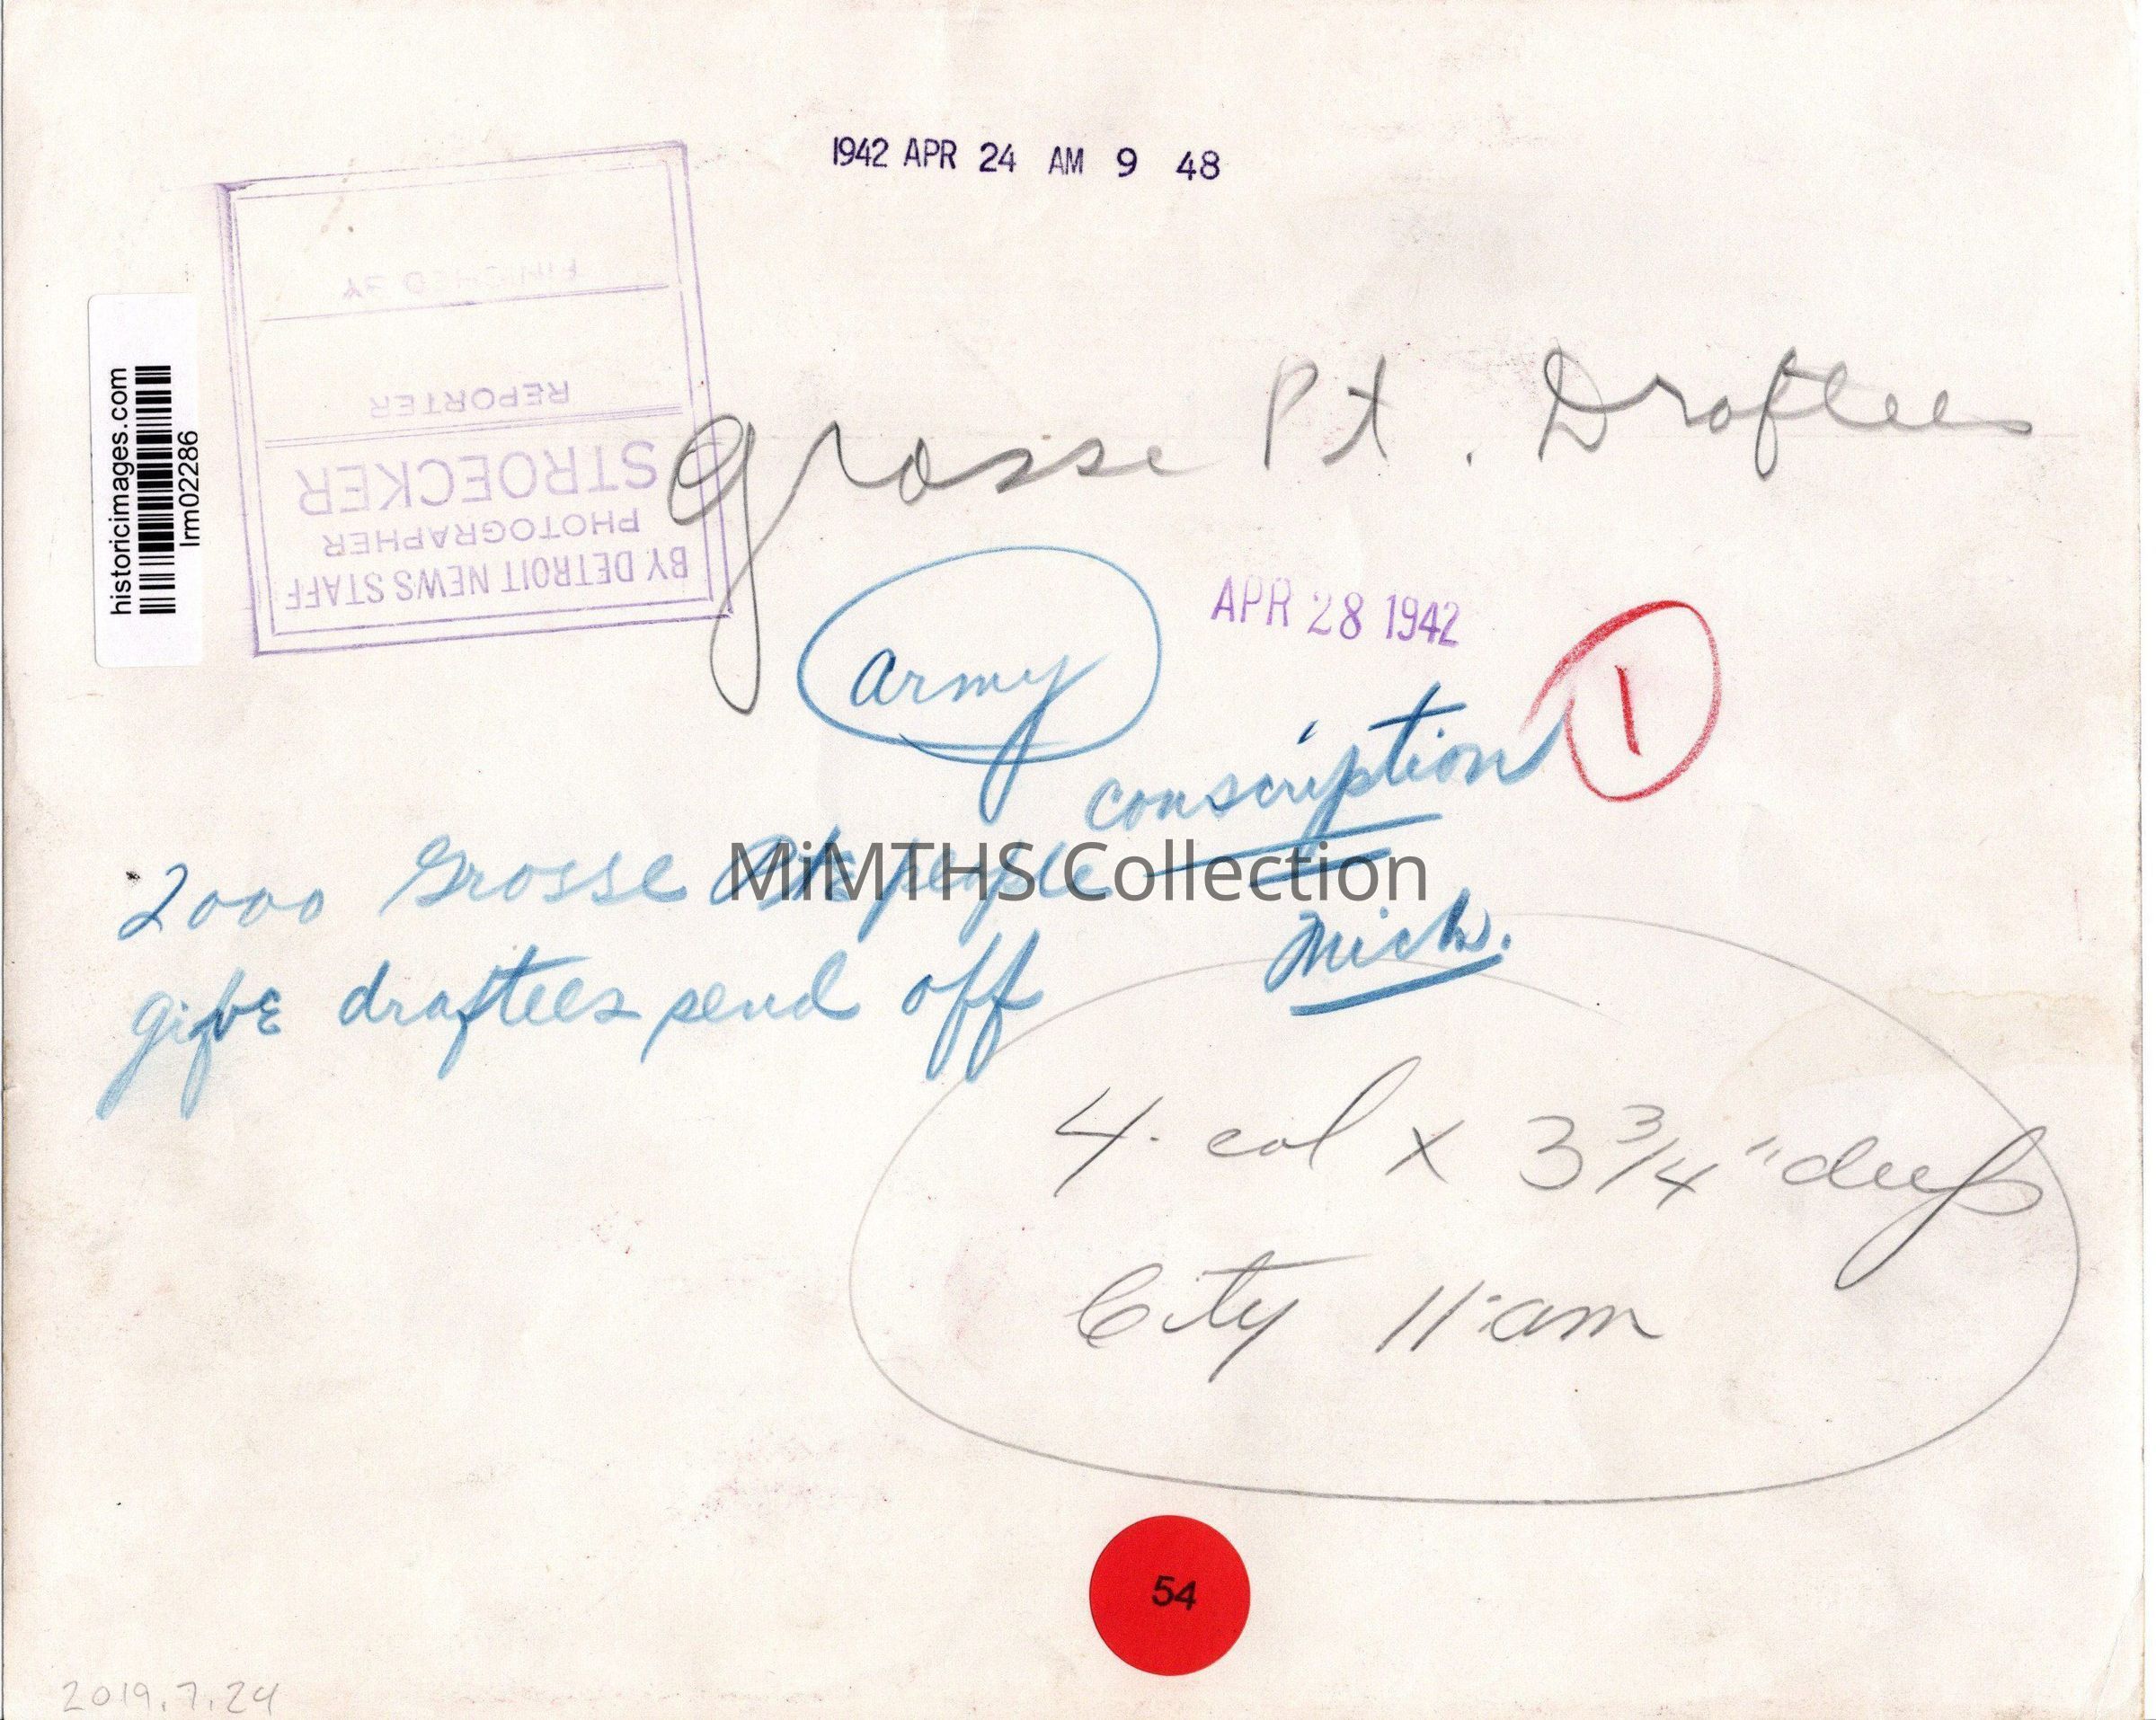 1942 APR 24 AM 9 48
FINISHED BY
REPORTER
STROECKER
PHOTOGRAPHER
BY DETROIT NEWS STAFF
historicimages.com
lrm02286
Grosse Pt. Draftees
APR 28 1942
Army
1
conscription
Mich.
2000 Grosse people
give draftees send off
MiMTHS Collection
4 col x 3 3/4" deep
City 11 am
54
2019.7.24